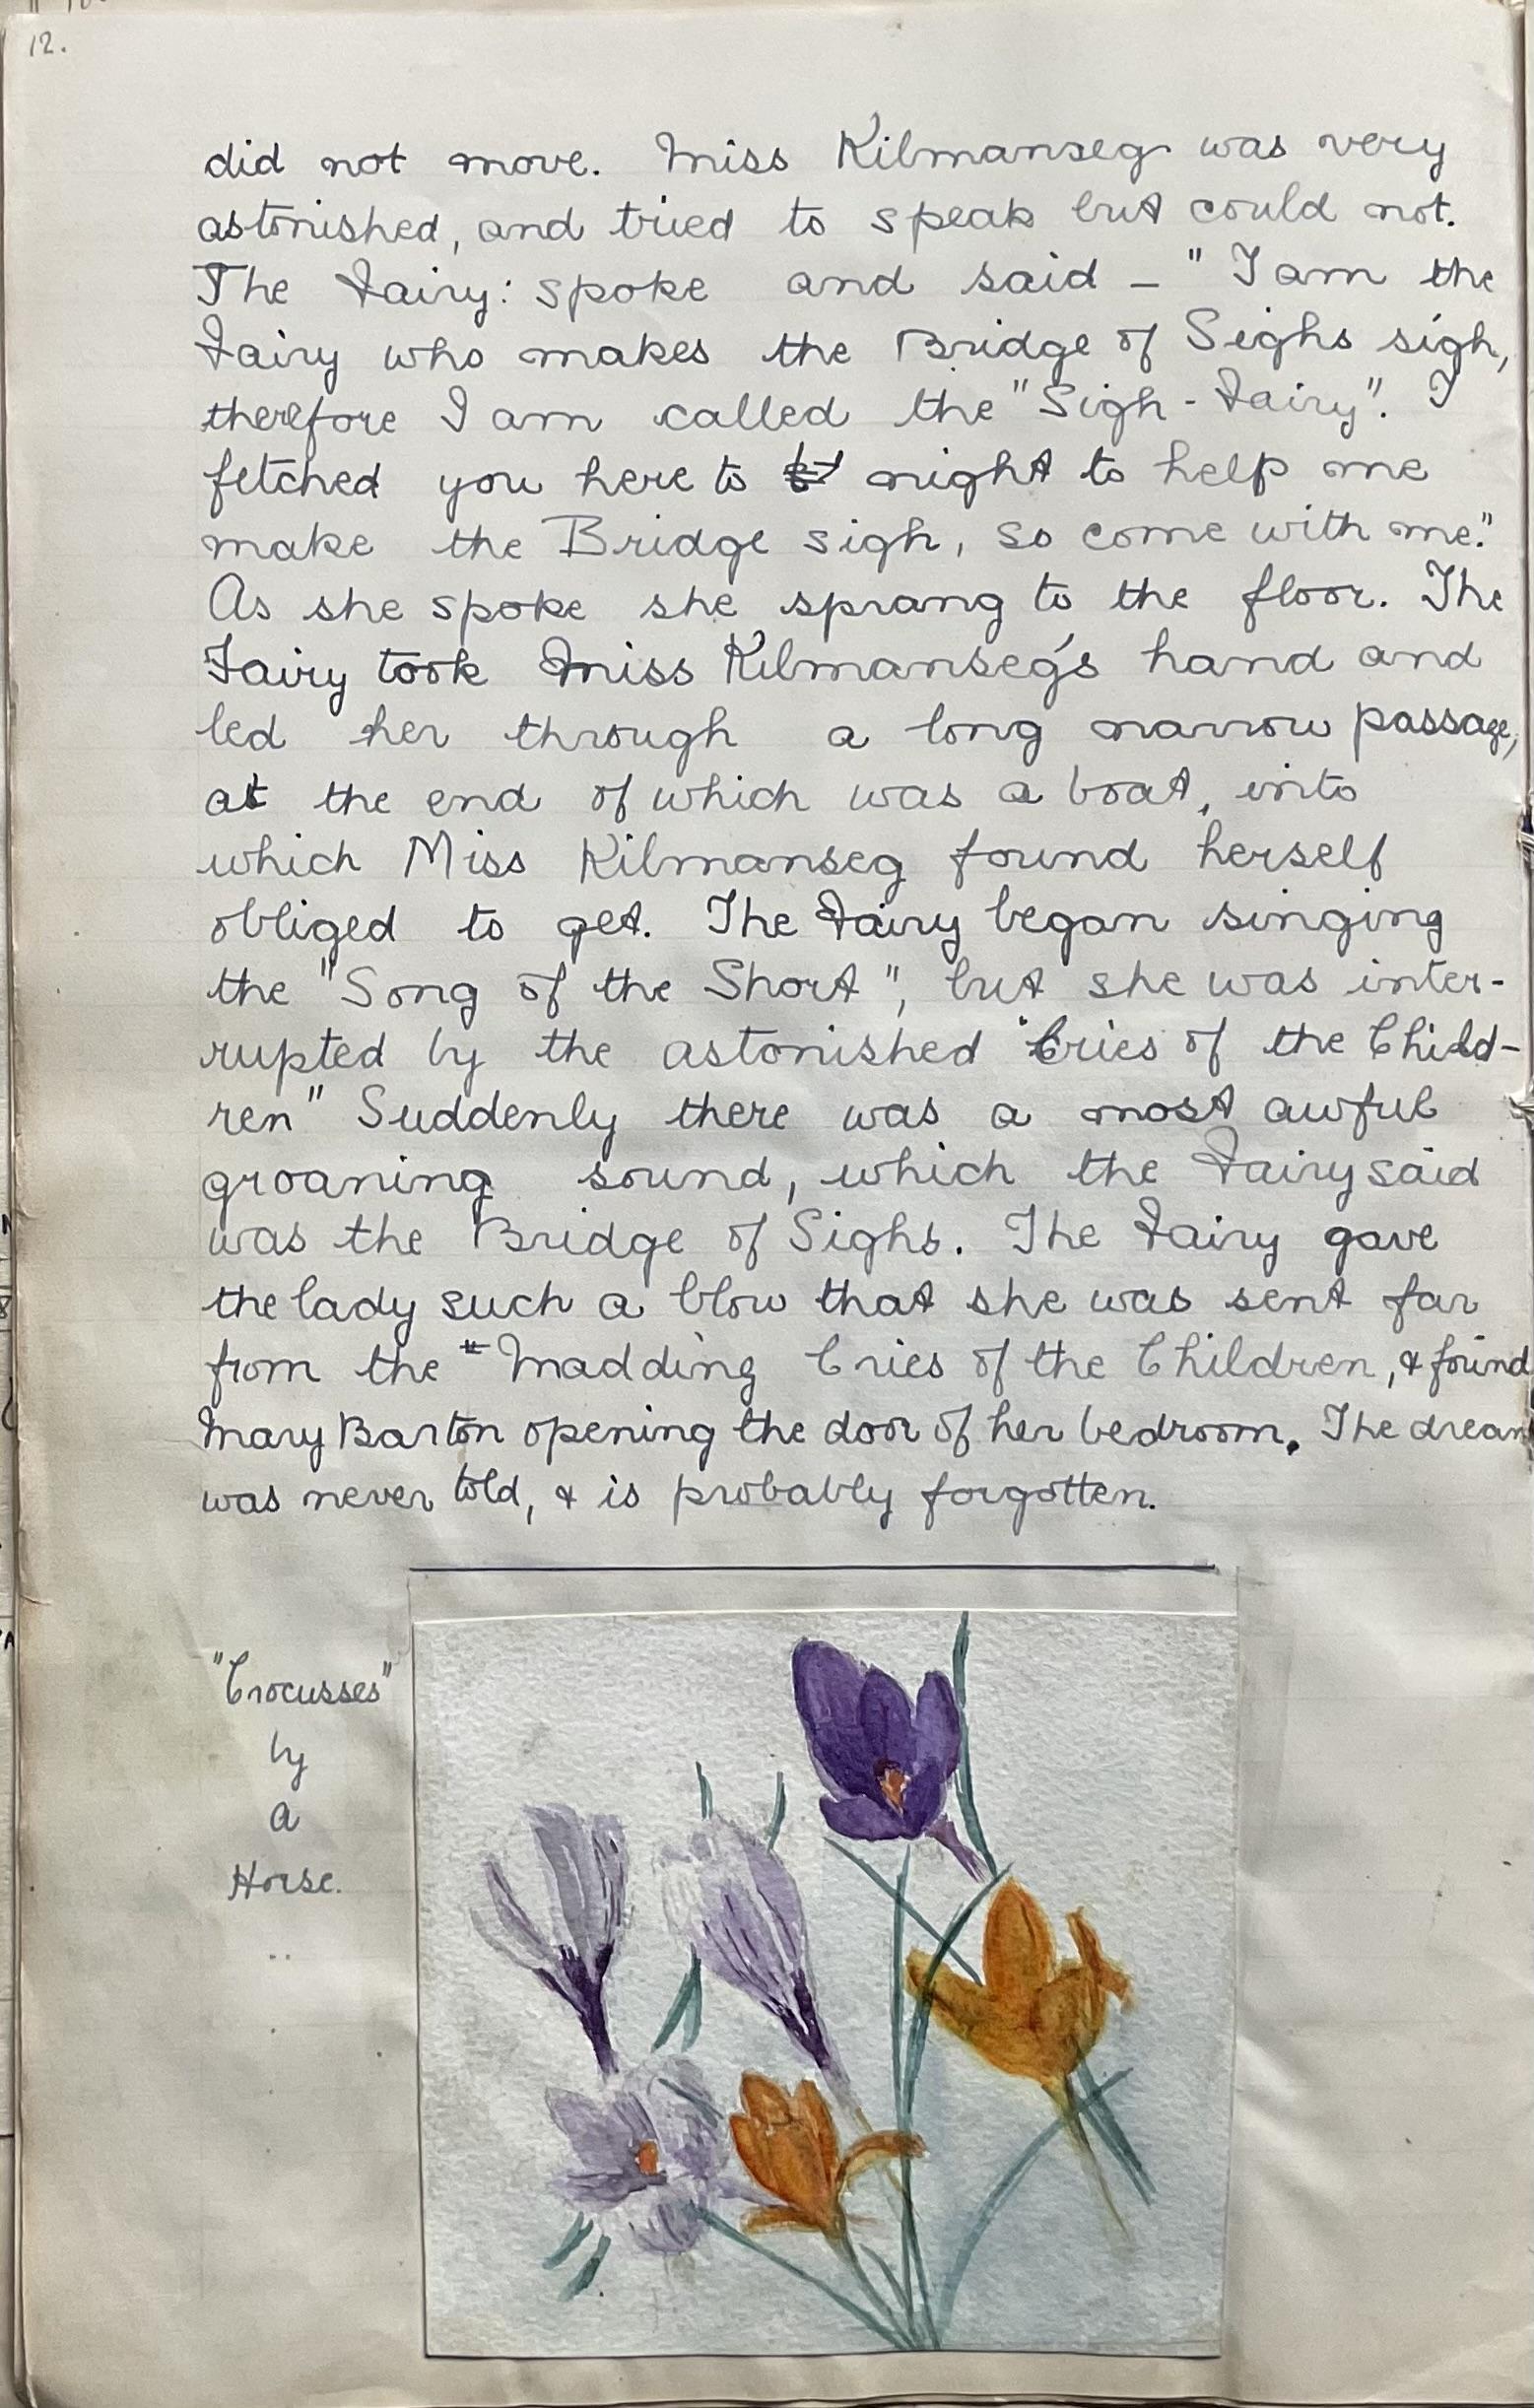 12.
did not move. Miss Kilmanseg was very
astonished, and tried to speak but could not.
The Fairy: spoke and said - "I am the
Fairy who makes the Bridge of Sighs sigh,
therefore I am called the "Sigh-Fairy". I
fetched you here to night to help me
make the Bridge sigh, so come with me."
As she spoke she sprang to the floor. The
Fairy took Miss Kilmanseg's hand and
led her through a long narrow passage,
at the end of which was a boat, into
which Miss Kilmanseg found herself
obliged to get. The Fairy began singing
the "Song of the Short", but she was inter-
rupted by the astonished "Cries of the Child-
ren" Suddenly there was a most awful
groaning sound, which the Fairy said
was the Bridge of Sighs. The Fairy gave
the lady such a blow that she was sent far
from the Madding Cries of the Children, & found
Mary Barton opening the door of her bedroom. The dream
was never told, & is probably forgotten.
"Crocusses"
by
A
Horse.